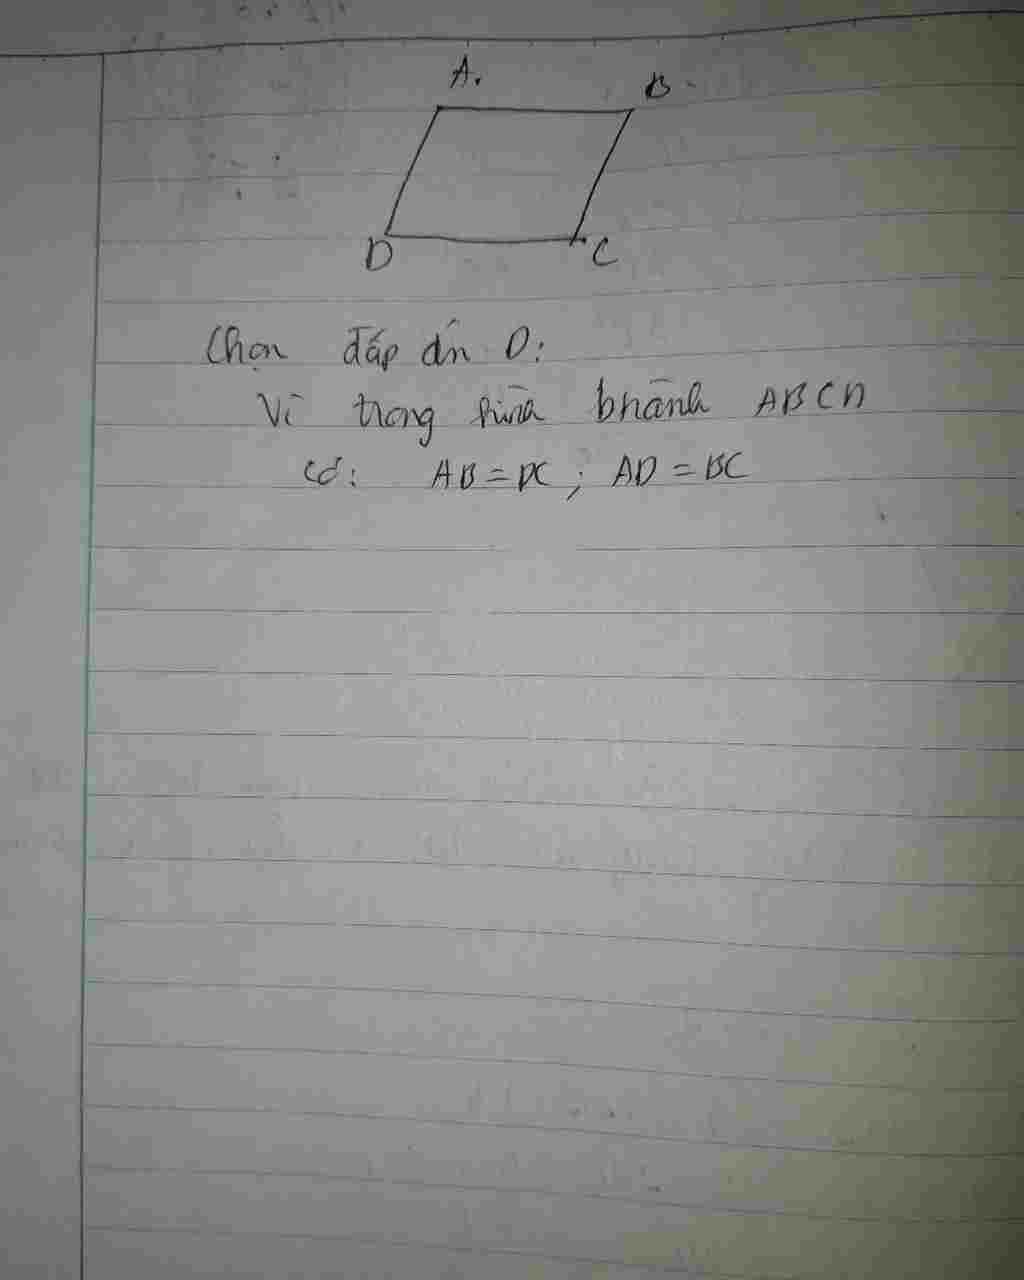 A.
B
D
C
Chọn đáp án D:
Vì trong hình bhành ABCD
Có: AB = DC ; AD = BC